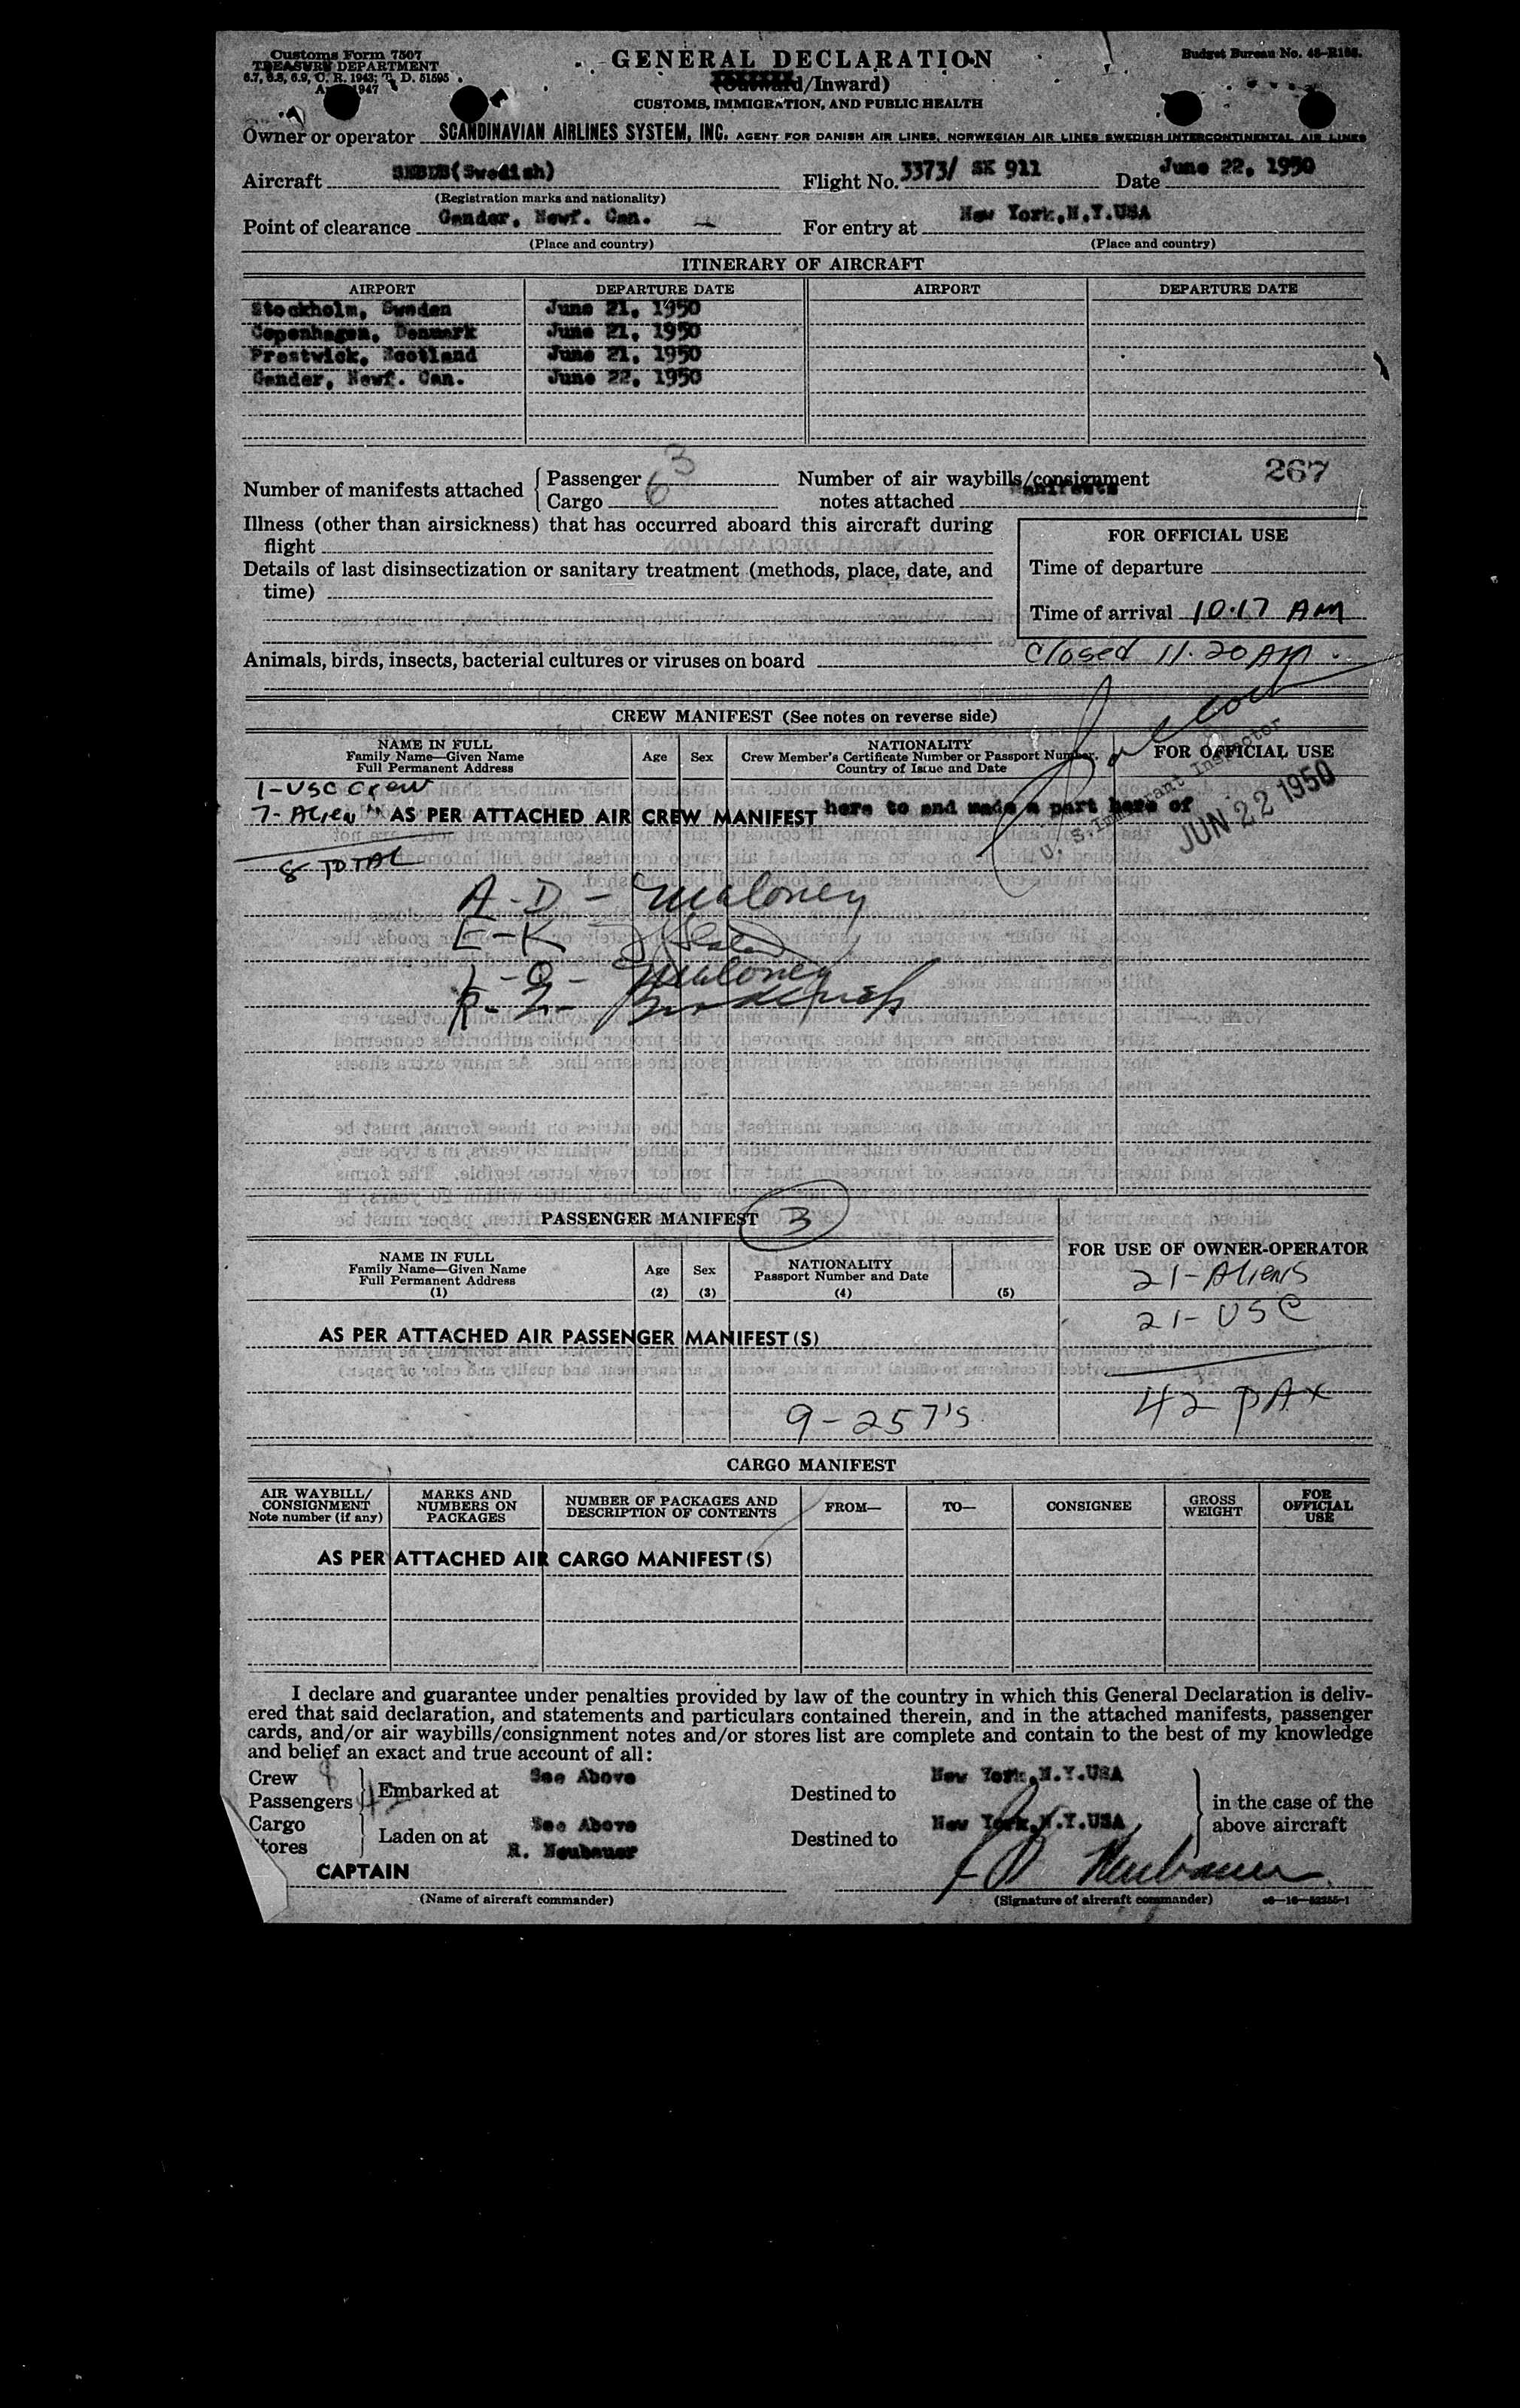 Customs Form 7507
TREASURY DEPARTMENT
6.7, 6.8, 6.9, C. R. 1943; T. D. 51595
1947
GENERAL DECLARATION
(Outward/Inward)
CUSTOMS, IMMIGRATION, AND PUBLIC HEALTH
Budget Bureau No.
Owner or operator SCANDINAVIAN AIRLINES SYSTEM, INC. AGENT FOR DANISH AIR LINES, NORWEGIAN AIR LINES SWEDISH INTERCONTINENTAL AIR LINES
Aircraft (Swedish) Flight No. 3373/ SK 911 Date June 22, 1950
(Registration marks and nationality)
Point of clearance Gander, Newf. Can. For entry at New York, N.Y.USA
(Place and country) (Place and country)
ITINERARY OF AIRCRAFT
AIRPORT DEPARTURE DATE AIRPORT DEPARTURE DATE
Stockholm, Sweden June 21, 1950
Copenhagen, Denmark June 21, 1950
Prestwick, Scotland June 21, 1950
Gander, Newf. Can. June 22, 1950
Number of manifests attached { Passenger 3
Cargo 6
Number of air waybills/consignment
notes attached Manifests
267
Illness (other than airsickness) that has occurred aboard this aircraft during
flight
Details of last disinsectization or sanitary treatment (methods, place, date, and
time)
FOR OFFICIAL USE
Time of departure
Time of arrival 10.17 AM
Animals, birds, insects, bacterial cultures or viruses on board
Closed 11.20 AM.
CREW MANIFEST (See notes on reverse side)
NAME IN FULL
Family Name—Given Name
Full Permanent Address
Age
Sex
NATIONALITY
Crew Member's Certificate Number or Passport Number,
Country of Issue and Date
FOR OFFICIAL USE
U. S. Immigrant Inspector
JUN 22 1950
1-USC Crew
7-Alien " AS PER ATTACHED AIR CREW MANIFEST here to and made a part here of
8 TOTAL
A-D - Maloney
E-K -
Maloney
PASSENGER MANIFEST 3
NAME IN FULL
Family Name—Given Name
Full Permanent Address
(1)
Age
(2)
Sex
(3)
NATIONALITY
Passport Number and Date
(4)
(5)
FOR USE OF OWNER-OPERATOR
21-Aliens
21-USC
AS PER ATTACHED AIR PASSENGER MANIFEST(S)
42 PAX
9-257's
CARGO MANIFEST
AIR WAYBILL/
CONSIGNMENT
Note number (if any)
MARKS AND
NUMBERS ON
PACKAGES
NUMBER OF PACKAGES AND
DESCRIPTION OF CONTENTS
FROM—
TO—
CONSIGNEE
GROSS
WEIGHT
FOR
OFFICIAL
USE
AS PER ATTACHED AIR CARGO MANIFEST(S)
I declare and guarantee under penalties provided by law of the country in which this General Declaration is deliv-
ered that said declaration, and statements and particulars contained therein, and in the attached manifests, passenger
cards, and/or air waybills/consignment notes and/or stores list are complete and contain to the best of my knowledge
and belief an exact and true account of all:
Crew 8
Passengers 42
Embarked at See Above Destined to New York,N.Y.USA
Cargo
Stores
Laden on at See Above Destined to New York,N.Y.USA
in the case of the
above aircraft
R. Neubauer
CAPTAIN
(Name of aircraft commander)
R Neubauer
(Signature of aircraft commander)